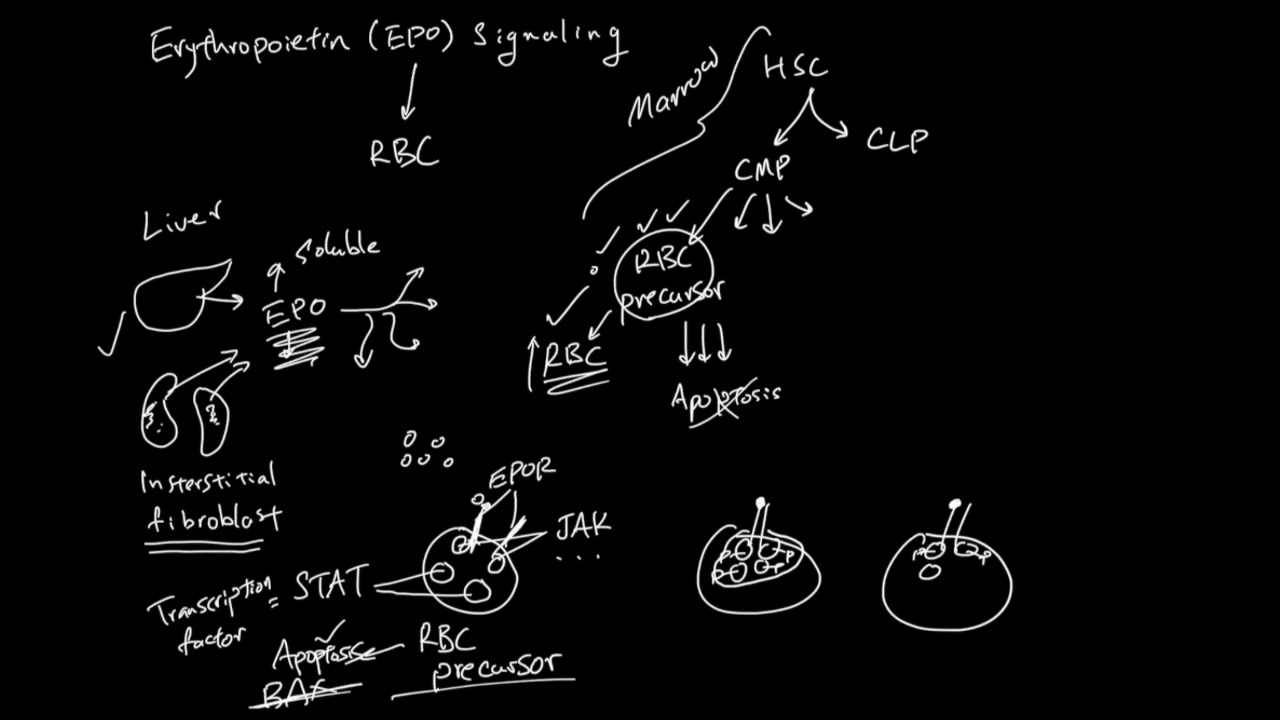 Erythropoietin (EPO) Signaling
RBC
Marrow
HSC
CMP
CLP
RBC
precursor
RBC
Apoptosis
Liver
Soluble
EPO
Insterstitial
fibroblast
EPOR
JAK
...
Transcription
factor
=
STAT
Apoptosis
BAX
RBC
precursor
P
P
P
P
P
P